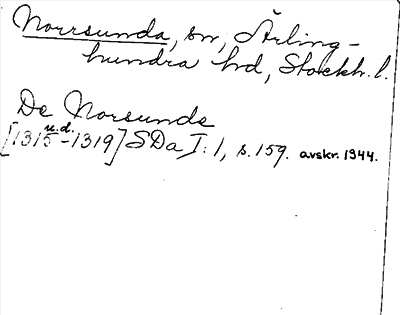 Norrsunda, sn, Ärling-
hundra hd, Stockh. l.
De Norsunde
u.d.
[1315-1319] SDa I:1, s.159. avskr. 1344.